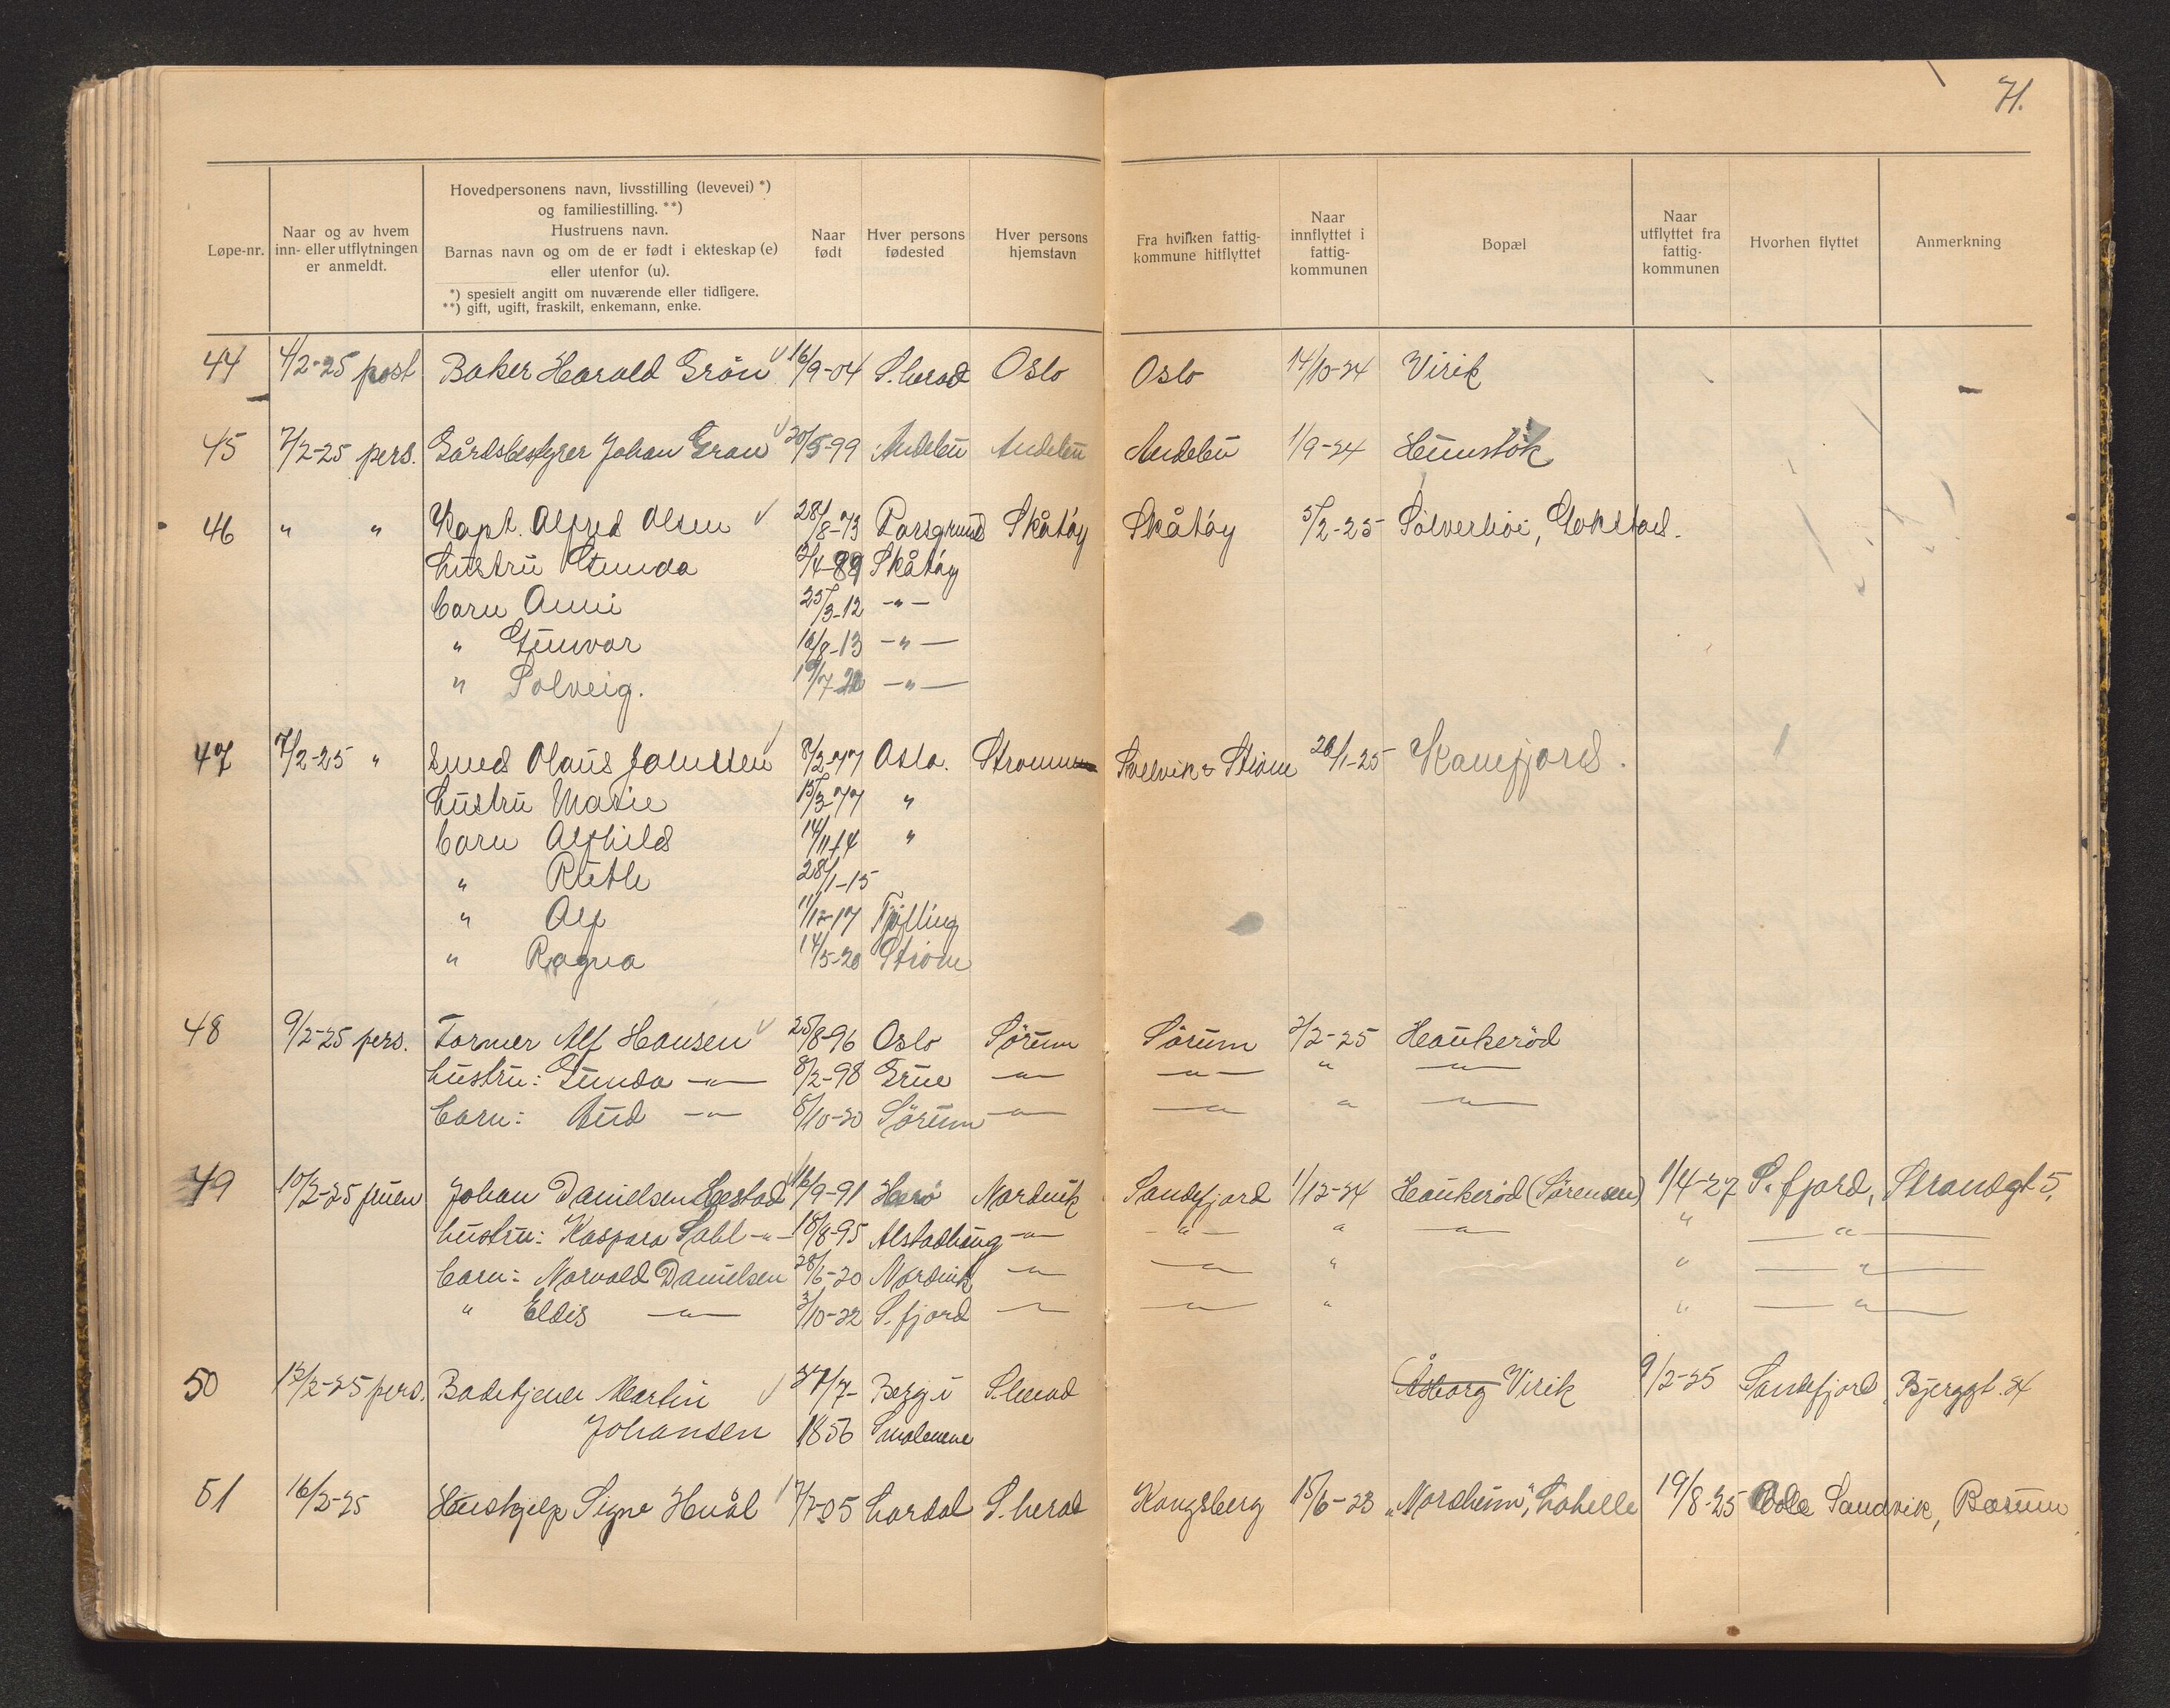 71.
Løpe-nr.
Naar og av hvem
inn- eller utflytningen
er anmeldt.
Hovedpersonens navn, livsstilling (levevei) *)
og familiestilling. **)
Hustruens navn.
Barnas navn og om de er født i ekteskap (e)
eller utenfor (u).
*) spesielt angitt om nuværende eller tidligere.
**) gift, ugift, fraskilt, enkemann, enke.
Naar
født
Hver persons
fødested
Hver persons
hjemstavn
Fra hvilken fattig-
kommune hitflyttet
Naar
innflyttet i
fattig-
kommunen
Bopæl
Naar
utflyttet fra
fattig-
kommunen
Hvorhen flyttet
Anmerkning
44 4/2-25 post Baker Harald Grön 16/9-04 S.herad Oslo Oslo 14/10-24 Virik
45 7/2-25 pers. Gårdsbestyrer Johan Gran 20/5-99 Andebu Andebu Andebu 1/9-24 Hunstok
46 " " Kapt. Alfred Olsen 28/8-73 Porsgrund Skåtöy Skåtöy 5/2-25 Sölverhöi, Gokstad.
hustru Gunda 3/4-89 Skåtöy
barn Anni 25/3-12 -"-
" Gunvor 16/8-13 -"-
" Solveig. 19/7-20 -"-
47 7/2-25 " Smed Olaus Johnssen 8/2-77 Oslo. Strömm Svelvik & Ström 26/1-25 Kamfjord.
hustru Marie 15/3-77 "
barn Alfhild 14/11-14 "
" Ruth 28/1-15
" Alf 11/12-17 Tjölling
" Ragna 14/5-20 Ström
48 9/2-25 pers. Former Alf Hansen 25/8-96 Oslo Sörum Sörum 2/2-25 Haukeröd
hustru: Gunda -"- 8/2-98 Grue -"- -"- " -"-
barn: Aud -"- 8/10-20 Sörum -"- -"- " -"-
49 10/2-25 fruen Johan Danielsen Hestad 16/9-91 Herö Nordvik Sandefjord 1/12-24 Haukeröd (Sörensen) 1/4-27 S.fjord, Strandgt 5.
hustru: Kaspara Dahl -"- 18/8-95 Alstadhaug -"- -"- " -"- " -"-
barn: Norvald Danielsen 28/6-20 Nordvik -"- -"- " " -"-
" Eldis -"- 3/10-22 S.fjord -"- -"- " " -"-
50 12/2-25 pers. Badetjener Martin 27/7- Berg i S.herad Åsborg Virik 9/2-25 Sandefjord, Bjerggt. 24
Johansen 1856 Smalenene
51 16/2-25 Hushjelp Signe Hvål 7/7-05 Lardal S.herad Kongsberg 15/6-23 "Nordheim", Lahelle 19/8-25 Sandvik, Bærum